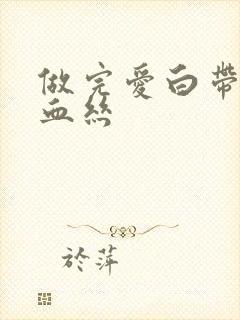 做完愛白帶
血絲
於萍